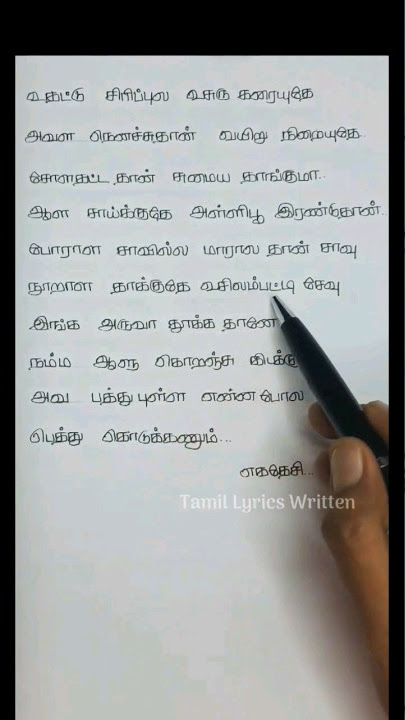 உதட்டு சிரிப்புல உசுரு கரையுதே
அவள நெனச்சுதான் வயிறு நிறையுதே
சோளதட்ட தான் சுமைய தாங்குமா..
ஆள சாய்க்குதே அள்ளிபூ இரண்டுதேன்..
போராள சாவில்ல மாரால தான் சாவு
நூறாள தாக்குதே உசிலம்பட்டி சேவு
இங்க அருவா தூக்க தானே
நம்ம ஆளு கொறஞ்சு கிடக்கு
அவ பத்து புள்ள என்ன போல
பெத்து கொடுக்கணும்...
ஏகதேசி...
Tamil Lyrics Written